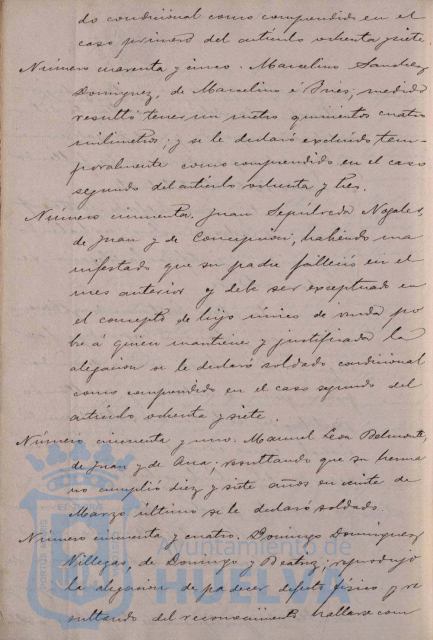 do condicional como comprendido en el
caso primero del artículo ochenta y siete
Número cuarenta y cinco. Marcelino Sanchez
Dominguez, de Marcelino é Ines; medido
resultó tener un metro quinientos cuatro
milimetros; y se le declaró excluido tem-
poralmente como comprendido en el caso
segundo del artículo ochenta y tres.
Número cincuenta. Juan Sepúlveda Nogales,
de Juan y de Concepcion; habiendo ma
nifestado que su padre falleció en el
mes anterior y debe ser exceptuado en
el concepto de hijo único de viuda po
bre á quien mantiene y justificada la
alegacion se le declaró soldado condicional
como comprendido en el caso segundo del
artículo ochenta y siete.
Número cincuenta y uno. Manuel Leon Belmonte,
de Juan y de Ana; resultando que su herma
no cumplió diez y siete años en veinte de
Marzo último se le declaró soldado.
Número cincuenta y cuatro. Domingo Dominguez
Villegas, de Domingo y Beatriz, reprodujo
la alegacion de padecer defecto físico y re
sultando del reconocimiento hallarse com
Ayuntamiento de
HUELVA